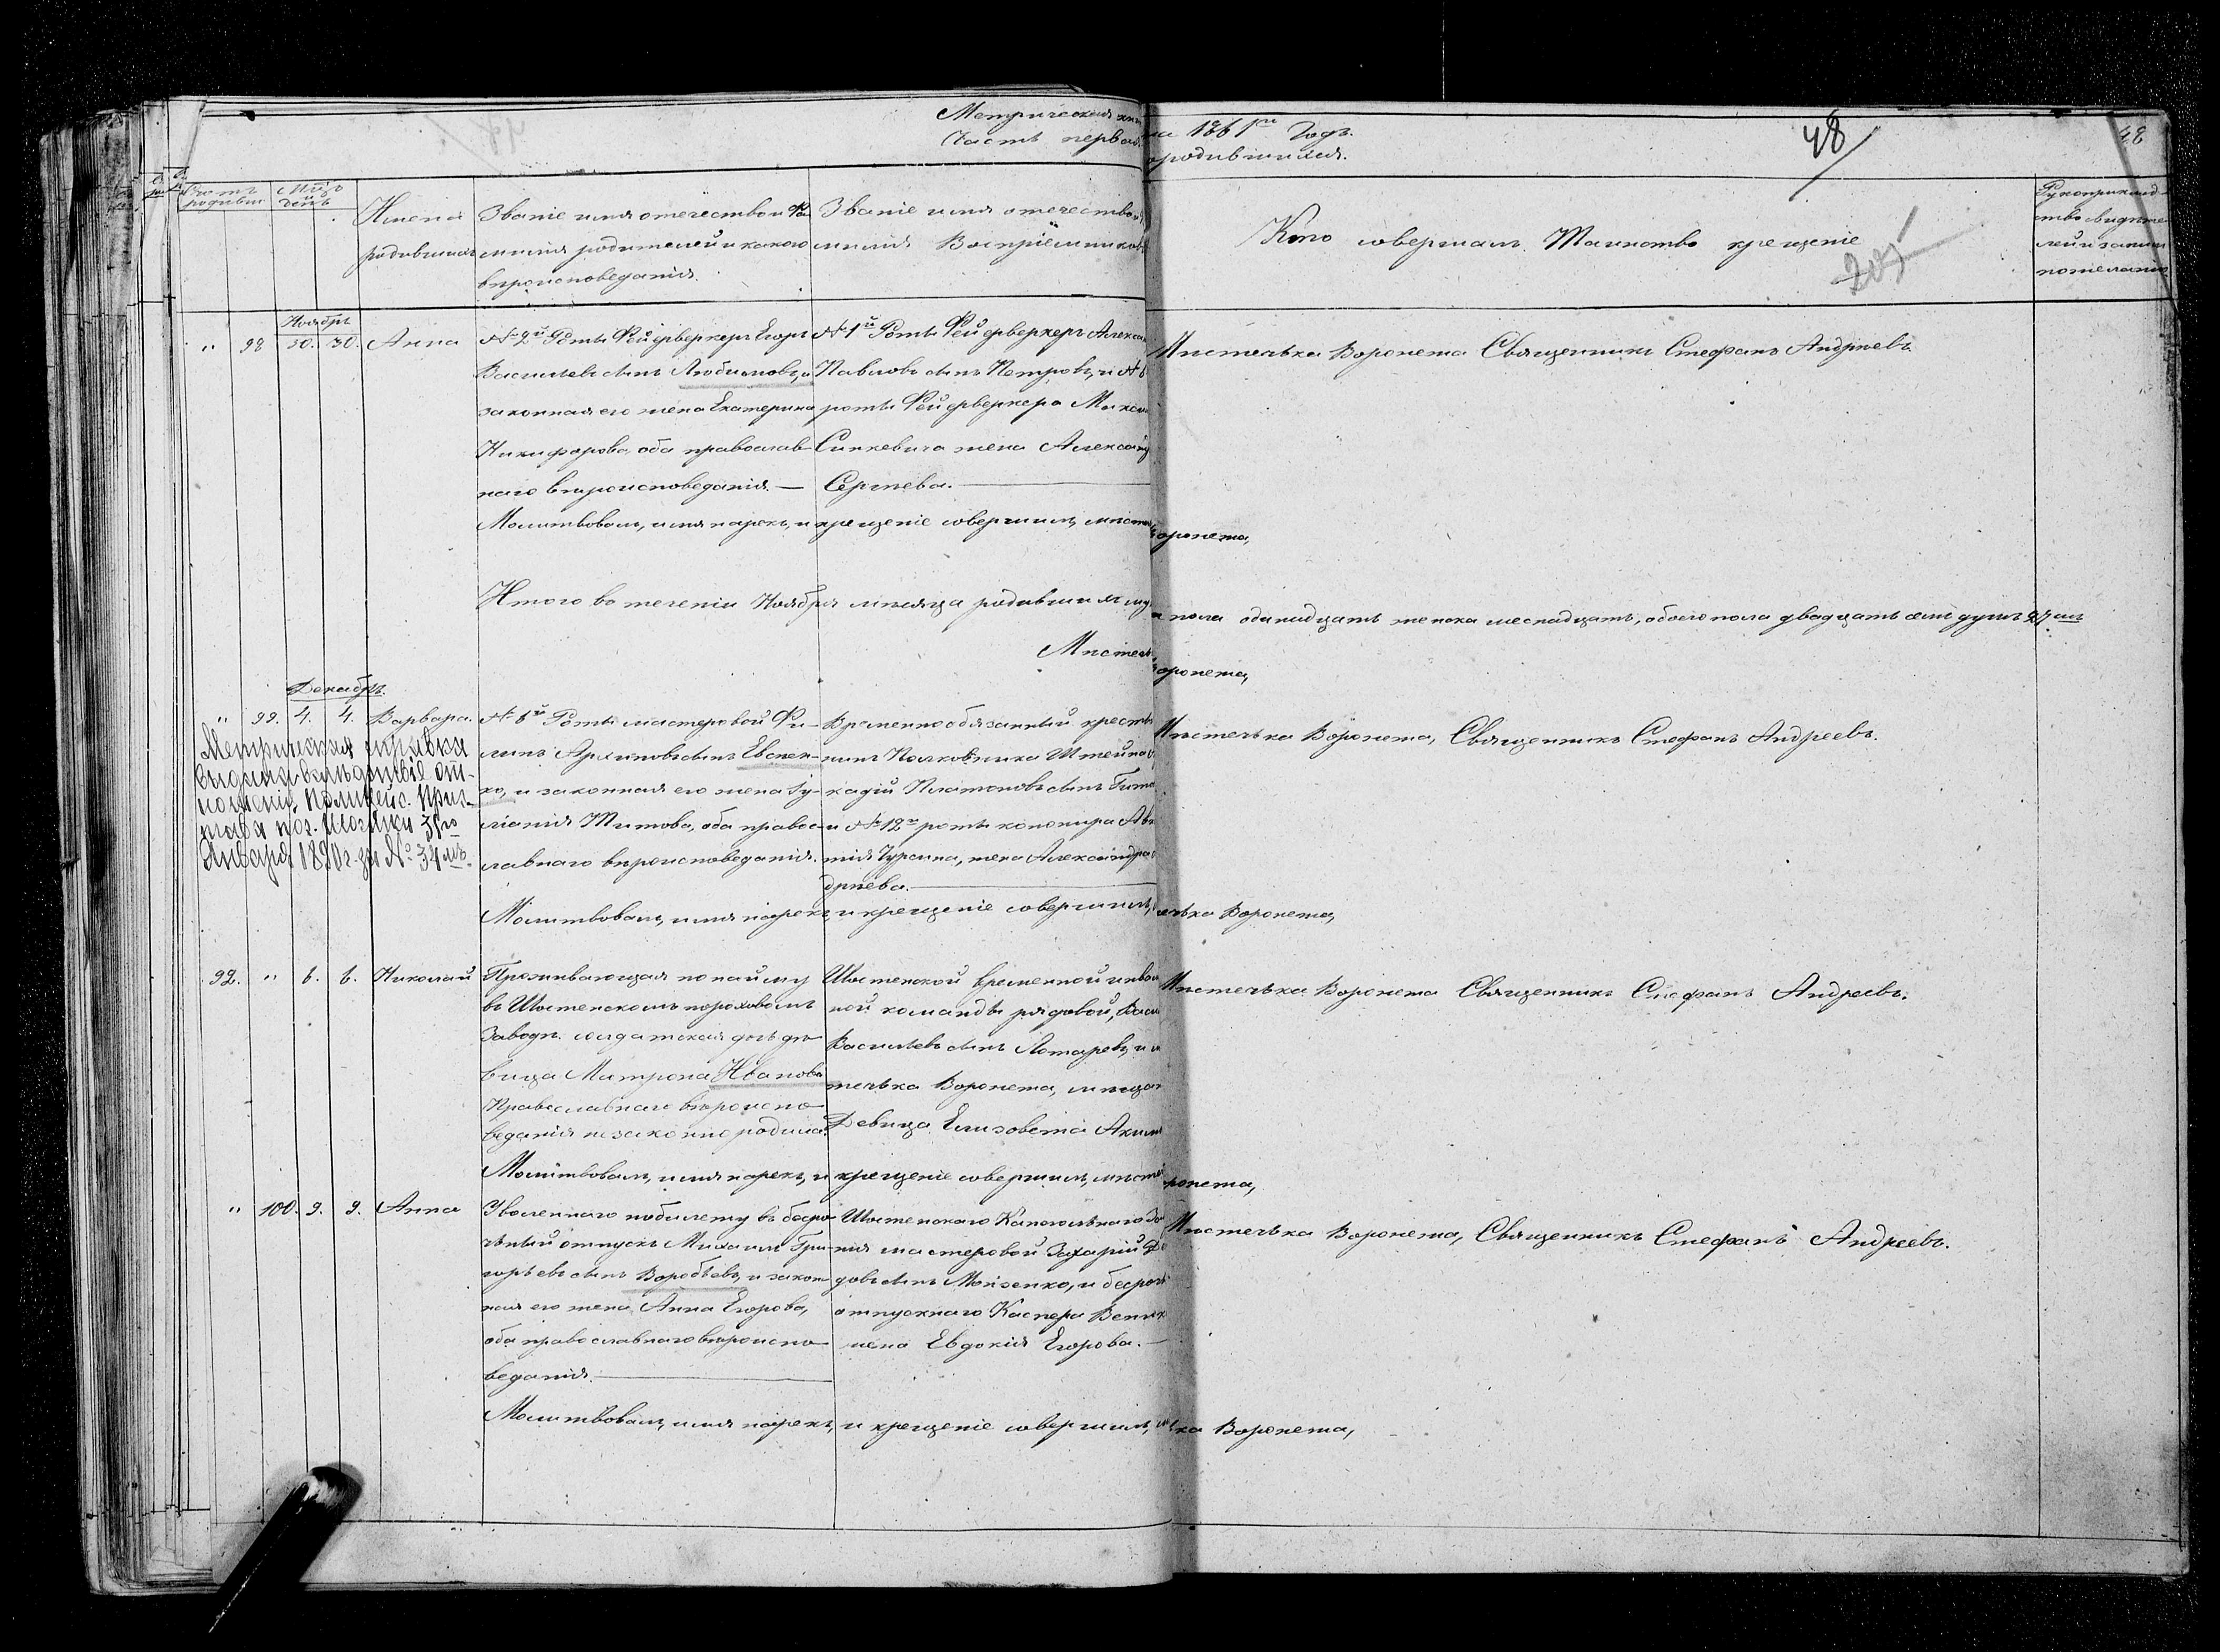 Метрическая кни на 1861го Годъ.
Часть первая. о родившихся.
48
48
Имена родившихся
Званіе имя отечество и Фамилія родителей и какого вѣроисповеданія.
Званіе имя отечество и милія Воспріемниковъ
Кто совершалъ Таинство крещеніе
205
Рукоприклад-
ство свидѣте-
лей
Ноябрь
" 98 30. 30. Анна
№ 2й Роты Фейерверкеръ Егоръ
Васильевъ сынъ Любимовъ, и
законная его жена Екатерина
Никифорова, оба православ-
наго вѣроисповеданія.—
№ 1й Роты Фейерверкеръ Алекса
Павловъ сынъ Петровъ, и №
роты Фейерверкера Михаи
Синкевича жена Александ
Сергѣева.
Мѣстечька Воронежа Священникъ Стефанъ Андрѣевъ
Молитвовалъ, имя нарекъ, и крещеніе совершилъ, мѣсте Воронежа,
Итого въ теченіи Ноября мѣсяца родившихъ му а пола одинадцать женска шеснадцать, обоего пола двадцать семь душъ 27мъ
Мѣстечь Воронежа,
Декабрь.
" 99. 4. 4. Варвара.
№ 6й Роты мастеровой Фи-
липъ Архиповъ сынъ Евсѣен-
ко, и законная его жена Іу-
ліанія Титова, оба правос-
лавнаго вѣроисповеданія.
Временнообязанный кресть
нинъ Полковника Штейна
кадій Платоновъ сынъ
и № 12й роты канонира
тія Турсина, жена Александра
дрѣева.
Мѣстечька Воронежа, Священникъ Стефанъ Андреевъ.
Метрическая справка
выдана вслѣдствіе от-
ношенія Полицейс. При-
става пос. Шостки 31го
Января 1890 г. за № 34мъ.
Молитвовалъ, имя нарекъ, и крещеніе совершилъ, ечька Воронежа,
92. " 6. 6. Николай
Проживающая по найму
въ Шостенскомъ пороховомъ
Заводѣ солдатская дочь дѣ-
вица Матрона Иванова
Православнаго вѣроиспо-
веданія незаконно родила.
Шостенской временной инвал
ной команды рядовой, Васи
Васильевъ сынъ Лотаревъ, и
течька Воронежа, мѣщан
Девица Елизовета Аким
Мѣстечька Воронежа Священникъ Стефанъ Андреевъ.
Молитвовалъ, имя нарекъ, и крещеніе совершилъ, мѣсте ронежа,
" 100. 9. 9. Анна
Уволеннаго по билету въ безсро-
чьный отпускъ Михаилъ Гри-
горьевъ сынъ Воробьевъ, и закон-
ная его жена Анна Егорова,
оба православнаго вѣроиспо-
веданія.
Шостенскаго Капсюльнаго За
нія мастеровой Захарій
довъ сынъ Моисенко, и бесроч
отпускнаго Каспера
жена Евдокія Егорова.—
Мѣстечька Воронежа, Священникъ Стефанъ Андреевъ.
Молитвовалъ, имя нарекъ, и крещеніе совершилъ, ька Воронежа,